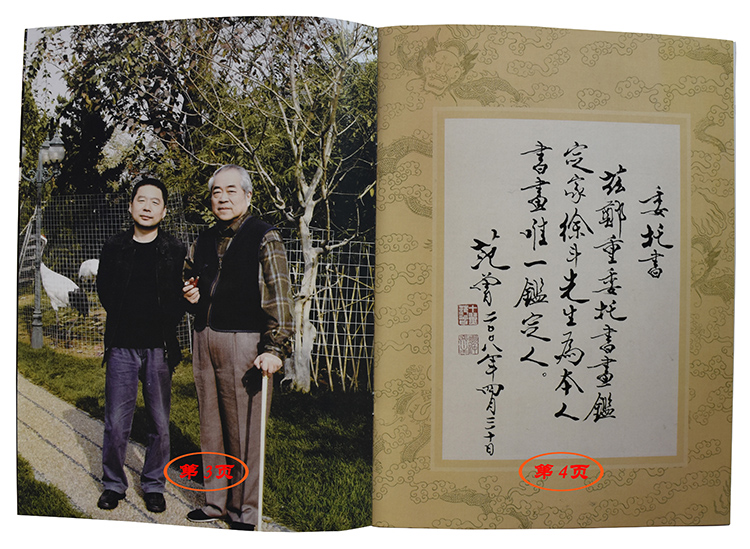 第3页
委托书
兹鄭重委托書畫鑑
定家徐斗先生為本人
書畫唯一鑑定人。
范曾二〇〇八年四月三十日
第4页